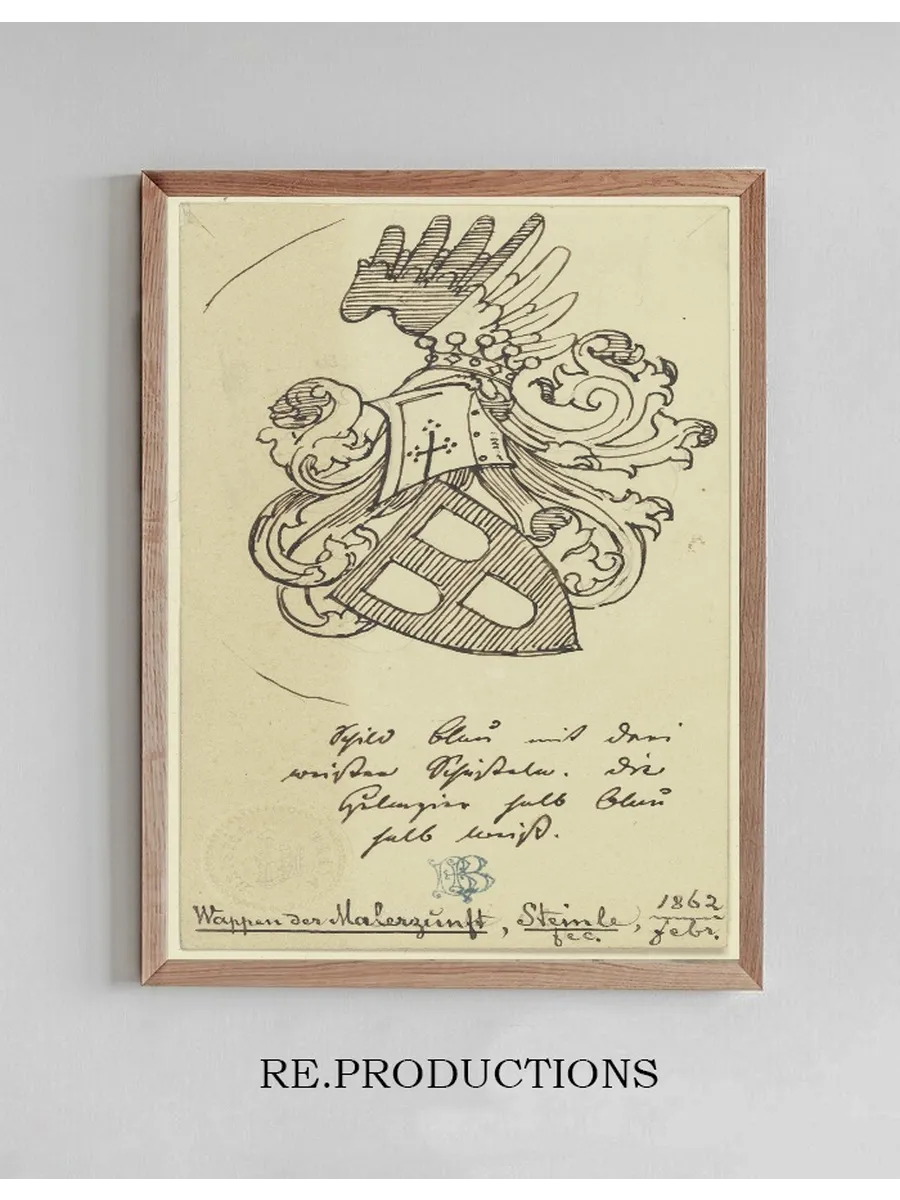 Schild blau mit drei
weißen Schüsteln. die
halb blau
halb weiß.
HB
Wappen der Malerzunft, Steinle, 1862
fec. febr.
RE.PRODUCTIONS